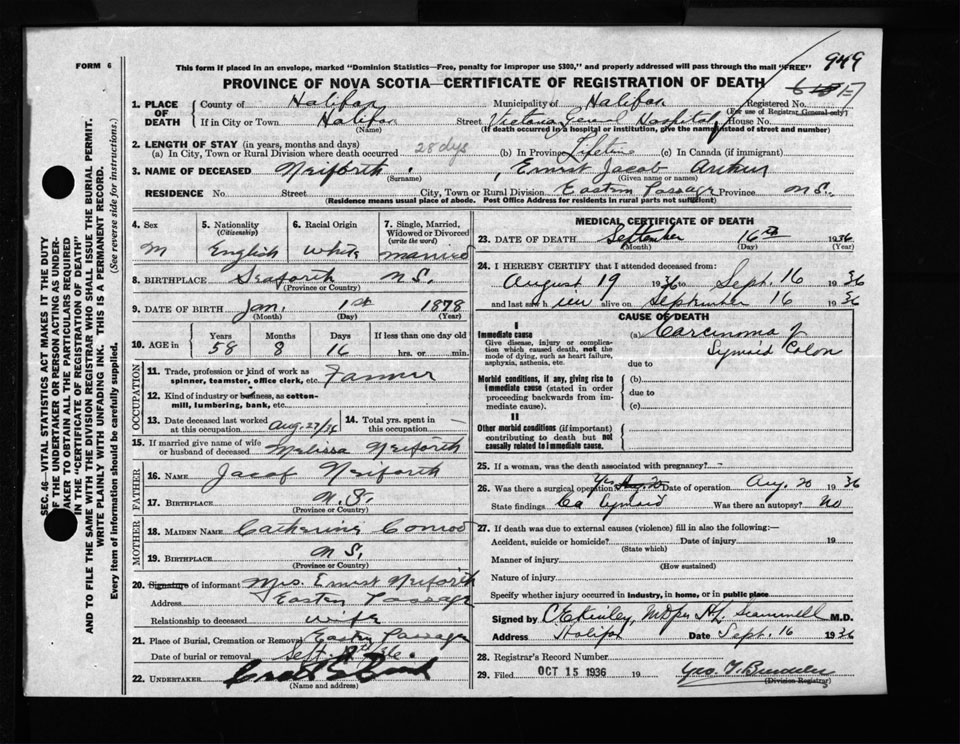 FORM 6
This form if placed in an envelope, marked "Dominion Statistics—Free, penalty for improper use $300," and properly addressed will pass through the mail "FREE"
949
PROVINCE OF NOVA SCOTIA—CERTIFICATE OF REGISTRATION OF DEATH
1. PLACE OF DEATH
County of Halifax Municipality of Halifax Registered No.
(For use of Registrar General only)
If in City or Town Halifax Street Victoria General Hospital House No.
(Name) (If death occurred in a hospital or institution, give the name instead of street and number)
2. LENGTH OF STAY (in years, months and days)
(a) In City, Town or Rural Division where death occurred 28 dys (b) In Province Lifetime (c) In Canada (if immigrant)
3. NAME OF DECEASED Neiforth, Ernest Jacob Arthur
(Surname) (Given name or names)
RESIDENCE No. Street City, Town or Rural Division Eastern Passage Province N.S.
(Residence means usual place of abode. Post Office Address for residents in rural parts not sufficient)
4. Sex 5. Nationality (Citizenship) 6. Racial Origin 7. Single, Married, Widowed or Divorced (write the word)
M English White married
8. BIRTHPLACE Seaforth N.S.
(Province or Country)
9. DATE OF BIRTH Jan. 1st 1878
(Month) (Day) (Year)
10. AGE in Years Months Days If less than one day old
58 8 16 hrs. or min.
OCCUPATION
11. Trade, profession or kind of work as spinner, teamster, office clerk, etc. Farmer
12. Kind of industry or business, as cotton-mill, lumbering, bank, etc.
13. Date deceased last worked at this occupation Aug. 27/36 14. Total yrs. spent in this occupation
15. If married give name of wife or husband of deceased Melissa Neiforth
FATHER
16. NAME Jacob Neiforth
17. BIRTHPLACE N.S.
(Province or Country)
MOTHER
18. MAIDEN NAME Catherine Conrod
19. BIRTHPLACE N.S.
(Province or Country)
20. Signature of informant Mrs. Ernest Neiforth
Address Eastern Passage
Relationship to deceased wife
21. Place of Burial, Cremation or Removal Eastern Passage
Date of burial or removal Sept.
22. UNDERTAKER
(Name and address)
MEDICAL CERTIFICATE OF DEATH
23. DATE OF DEATH September 16th 1936
(Month) (Day) (Year)
24. I HEREBY CERTIFY that I attended deceased from:
August 19 1936 to Sept. 16 1936
and last saw him alive on September 16 1936
CAUSE OF DEATH
I
Immediate cause
Give disease, injury or complication which caused death, not the mode of dying, such as heart failure, asphyxia, asthenia, etc.
(a) Carcinoma of
Sigmoid Colon
due to
Morbid conditions, if any, giving rise to immediate cause (stated in order proceeding backwards from immediate cause).
(b)
due to
(c)
II
Other morbid conditions (if important) contributing to death but not causally related to immediate cause.
25. If a woman, was the death associated with pregnancy?
26. Was there a surgical operation Yes Aug. 20 Date of operation Aug. 20 1936
State findings Ca Sigmoid Was there an autopsy? No
27. If death was due to external causes (violence) fill in also the following:—
Accident, suicide or homicide? Date of injury 19
(State which)
Manner of injury
(How sustained)
Nature of injury
Specify whether injury occurred in industry, in home, or in public place
Signed by C E Kinley, MD per H L Scammell M.D.
Address Halifax Date Sept. 16 1936
28. Registrar's Record Number
29. Filed OCT 15 1936 19
(Division Registrar)
SEC. 46—VITAL STATISTICS ACT MAKES IT THE DUTY
OF THE UNDERTAKER OR PERSON ACTING AS UNDER-
TAKER TO OBTAIN ALL THE PARTICULARS REQUIRED
IN THE "CERTIFICATE OF REGISTRATION OF DEATH"
AND TO FILE THE SAME WITH THE DIVISION REGISTRAR WHO SHALL ISSUE THE BURIAL PERMIT.
WRITE PLAINLY WITH UNFADING INK. THIS IS A PERMANENT RECORD.
Every item of information should be carefully supplied. (See reverse side for instructions.)